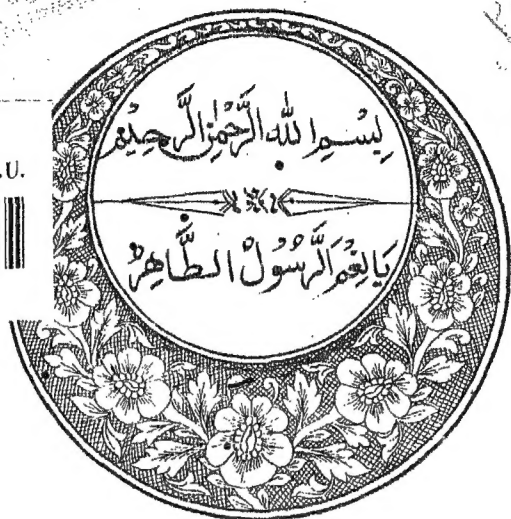 بِسْمِ اللهِ الرَّحْمٰنِ الرَّحِيْمِ
يَا نِعْمَ الرَّسُوْلُ الطَّاهِرُ
.U.